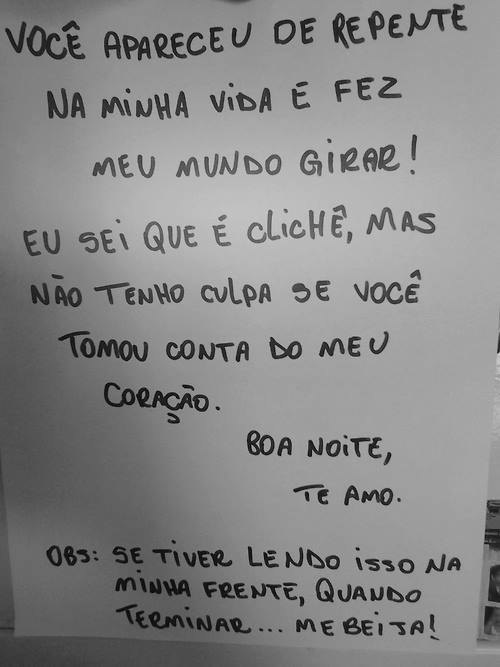 VOCÊ APARECEU DE REPENTE
NA MINHA VIDA E FEZ
MEU MUNDO GIRAR!
EU SEI QUE É CLICHÊ, MAS
NÃO TENHO CULPA SE VOCÊ
TOMOU CONTA DO MEU
CORAÇÃO.
BOA NOITE,
TE AMO.
OBS: SE TIVER LENDO ISSO NA
MINHA FRENTE, QUANDO
TERMINAR... ME BEIJA!